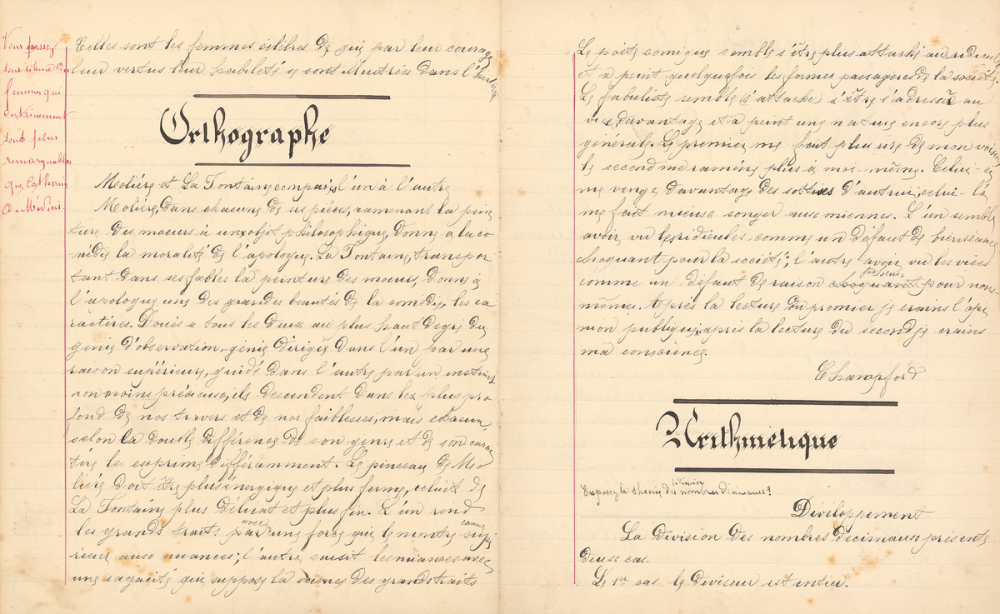 Vous passez
sous silence des
femmes qui
certainement
sont plus
remarquables
que Catherine
de Médicis
Telles sont les femmes célèbres de qui par leur courage
leur vertus leur habileté y sont illustrées dans l'histoire
Orthographe
Molière et La Fontaine comparés l'un à l'autre
Molière, dans chacune de ses pièces, ramenant la pein
ture des moeurs à un objet philosophique, donne à la co
médie la moralité de l'apologue. La Fontaine, transpor
tant dans ses fables la peinture des moeurs, donne à
l'apologue une des grandes beautés de la comédie, les ca
ractères. Doués à tous les deux au plus haut degré du
génie d'observation, génie dirigé dans l'un par une
raison supérieure, guidé dans l'autre par un instinct
non moins précieuse, ils descendent dans le plus pro
fond de nos travers et de nos faiblesses, mais chacun,
selon la double différence de son genre et de son carac
tère les exprime différemment. Le pinceau de Mo
lière doit être plus énergique et plus ferme, celui de
La Fontaine plus délicat et plus fin. L'un rend
les grands traits avec une force que le montre comme supé
rieur aux nuances; l'autre saisit les nuances avec
une sagacité qui suppose la science des grands traits
Le poète comique semble s'être plus attaché au ridicule
et a peint quelquefois les formes passagères de la société.
Le fabuliste semble s'être s'adresser au
vice davantage et a peint une nature encore plus
générale. Le premier me fait plus rire de mon voisin,
le second me ramène plus à moi-même. Celui-ci
me venge davantage des sottises d'autrui, celui-là
me fait mieux songer aux miennes. L'un semble
avoir vu les ridicules comme un défaut de bienséance
choquant pour la société; l'autre, avoir vu les vices
comme un défaut de raison fâcheux pour nous-
mêmes. Après la lecture du premier je crains l'opi
nion publique, après la lecture du second je crains
ma conscience.
Champford
Arithmétique
Exposez la théorie des nombres décimaux?
Développement
La Division des nombres décimaux présente
deux cas.
Le 1er cas le diviseur est entier.